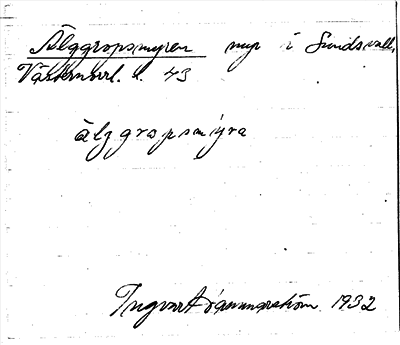 Älggropsmyren myr i Sundsvall,
Västernorrl. l. 43
älggropsmýra
Ingvar 1932